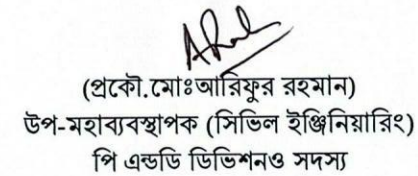 (প্রকৌ.মোঃআরিফুর রহমান)
উপ-মহাব্যবস্থাপক (সিভিল ইঞ্জিনিয়ারিং)
পি এন্ডডি ডিভিশনও সদস্য